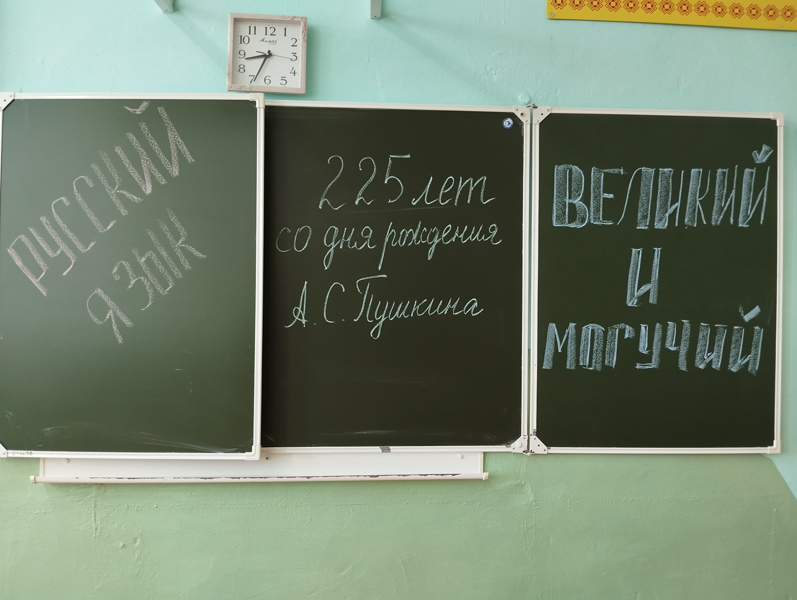 РУССКИЙ
ЯЗЫК
225 лет
со дня рождения
А. С. Пушкина
ВЕЛИКИЙ
И
МОГУЧИЙ
11 12 1
10 2
9 3
8 4
7 6 5